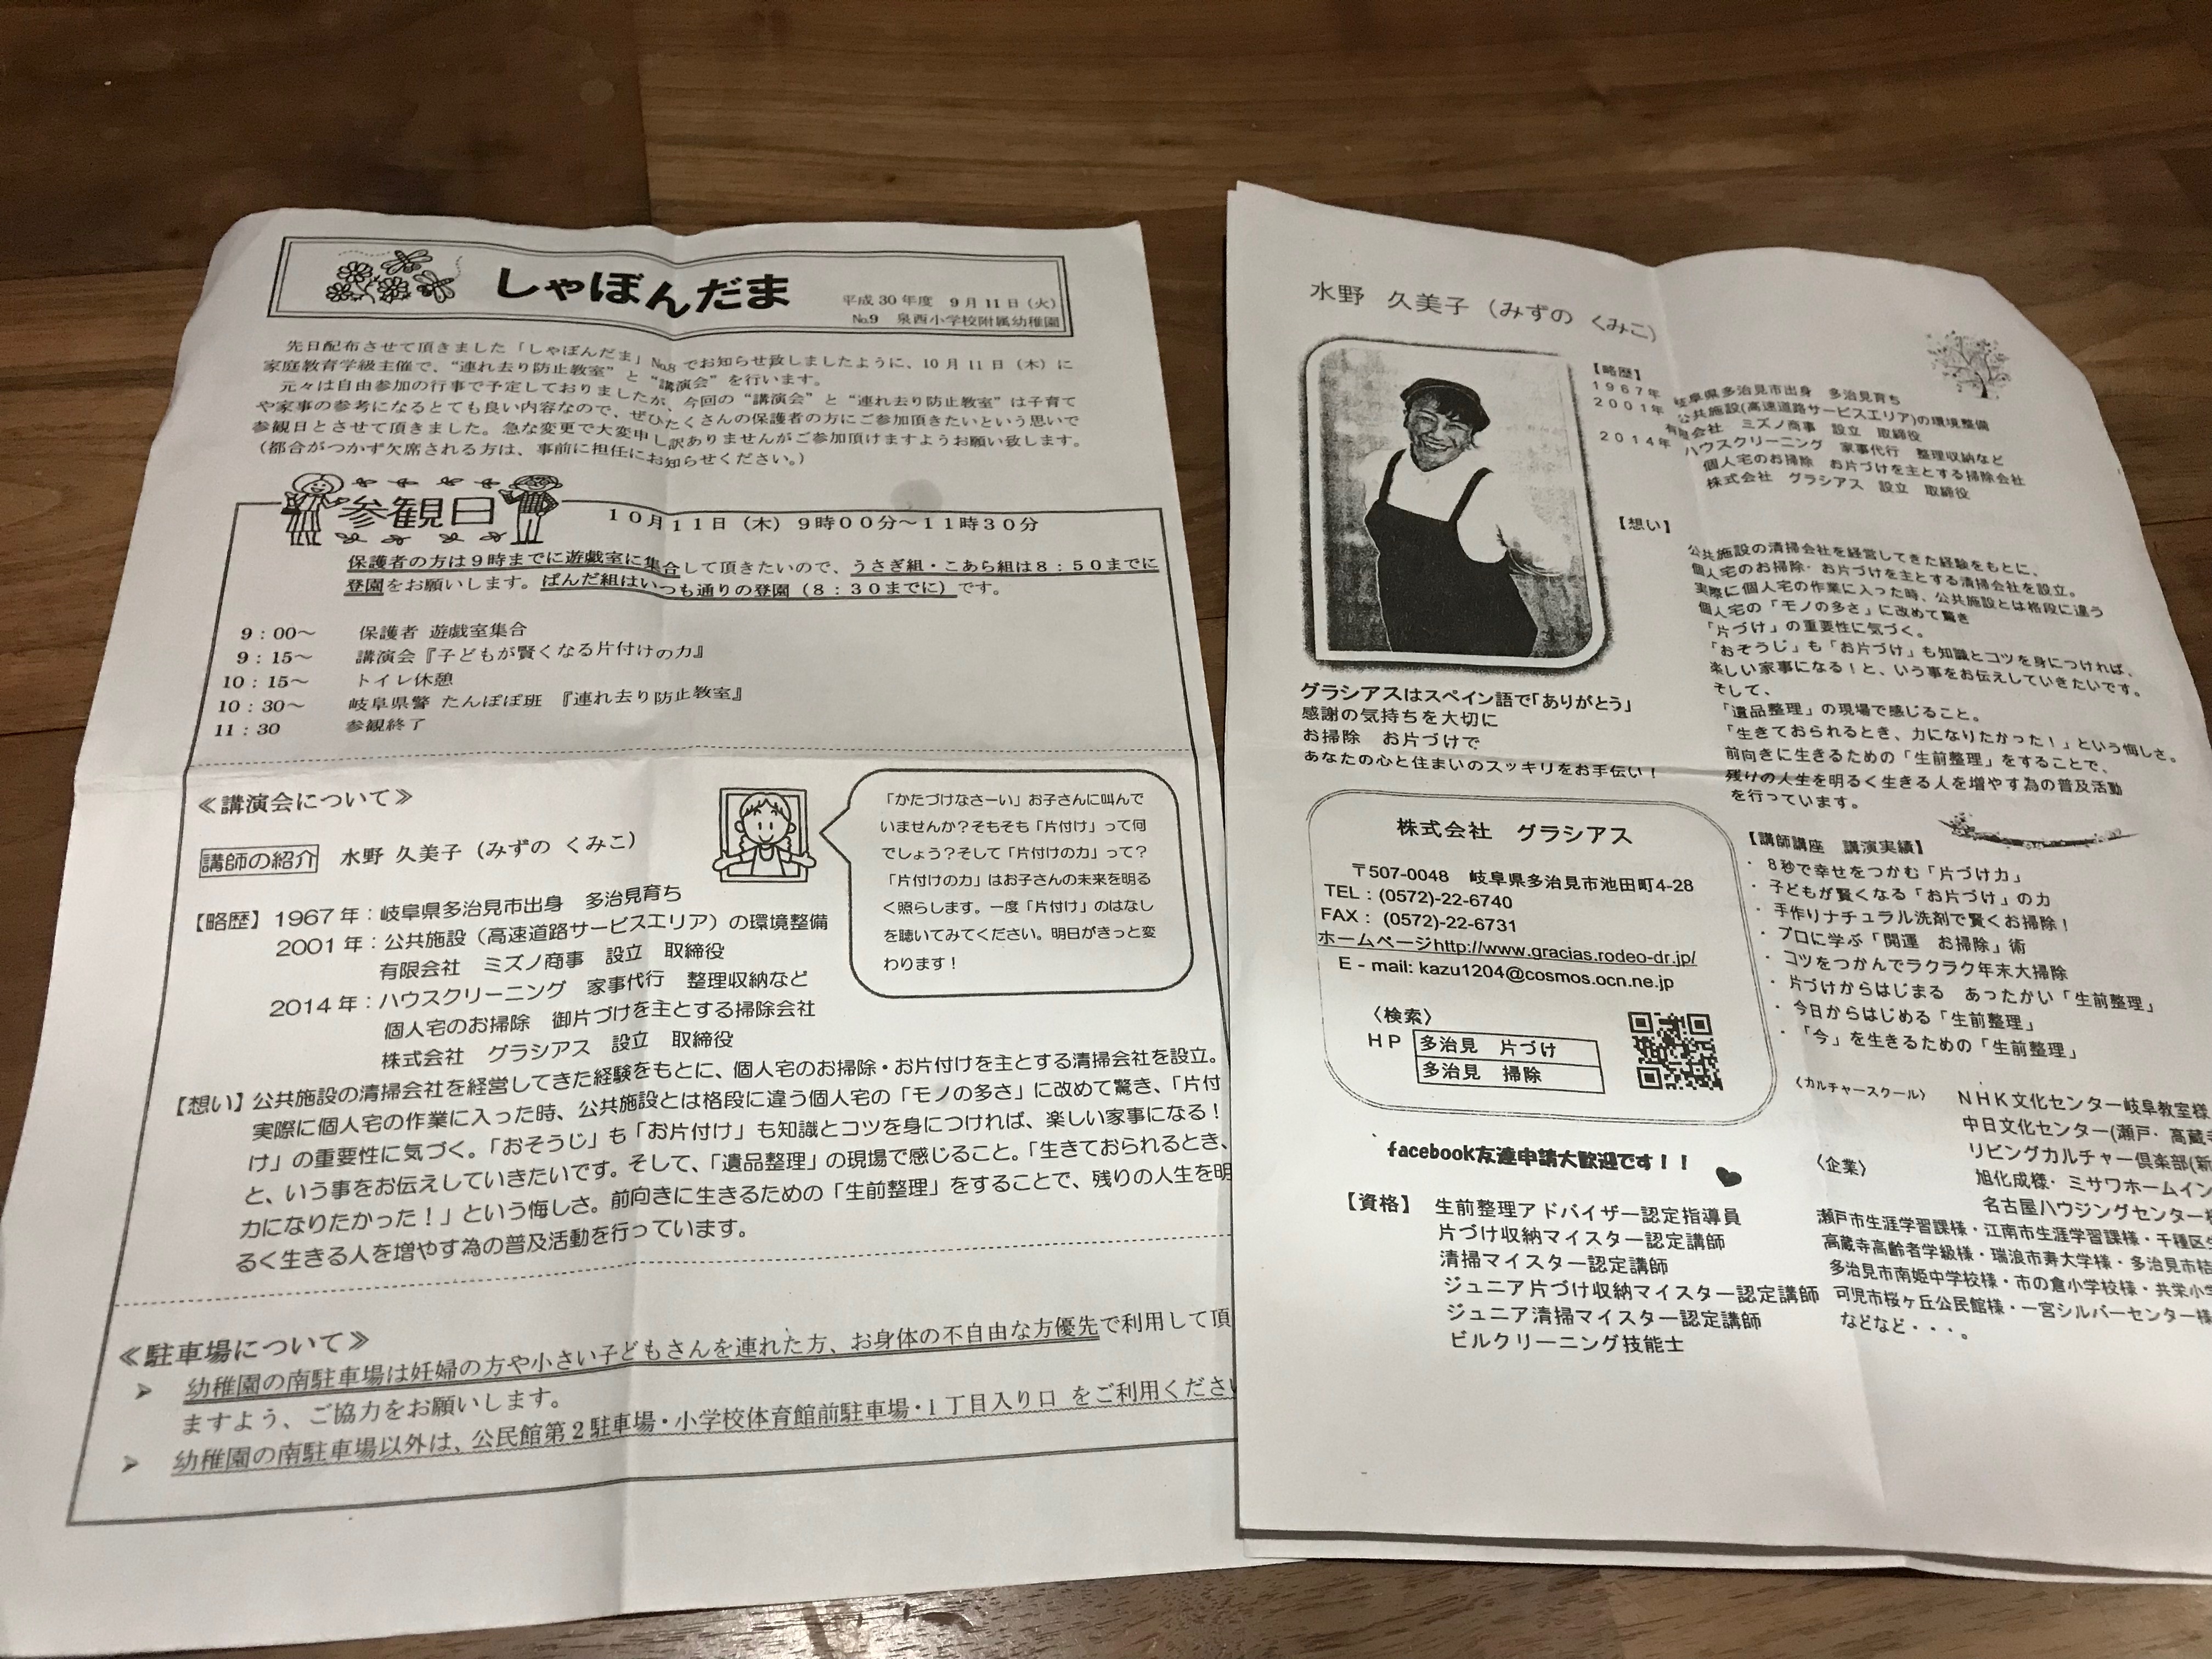 しゃぼんだま
平成30年度 9月11日(火)
№9 泉西小学校附属幼稚園
先日配布させて頂きました「しゃぼんだま」№8でお知らせ致しましたように、10月11日(木)に
家庭教育学級主催で、“連れ去り防止教室”と“講演会”を行います。
元々は自由参加の行事で予定しておりましたが、今回の“講演会”と“連れ去り防止教室”は子育て
や家事の参考になるとても良い内容なので、ぜひたくさんの保護者の方にご参加頂きたいという思いで
参観日とさせて頂きました。急な変更で大変申し訳ありませんがご参加頂けますようお願い致します。
(都合がつかず欠席される方は、事前に担任にお知らせください。)
参観日 10月11日(木)9時00分~11時30分
保護者の方は9時までに遊戯室に集合して頂きたいので、うさぎ組・こあら組は8:50までに
登園をお願いします。ぱんだ組はいつも通りの登園(8:30までに)です。
9:00~ 保護者 遊戯室集合
9:15~ 講演会『子どもが賢くなる片付けの力』
10:15~ トイレ休憩
10:30~ 岐阜県警 たんぽぽ班 『連れ去り防止教室』
11:30 参観終了
≪講演会について≫
講師の紹介 水野 久美子(みずの くみこ)
【略歴】1967年:岐阜県多治見市出身 多治見育ち
2001年:公共施設(高速道路サービスエリア)の環境整備
有限会社 ミズノ商事 設立 取締役
2014年:ハウスクリーニング 家事代行 整理収納など
個人宅のお掃除 御片づけを主とする掃除会社
株式会社 グラシアス 設立 取締役
「かたづけなさーい」お子さんに叫んで
いませんか?そもそも「片付け」って何
でしょう?そして「片付けの力」って?
「片付けの力」はお子さんの未来を明る
く照らします。一度「片付け」のはなし
を聴いてみてください。明日がきっと変
わります!
【想い】公共施設の清掃会社を経営してきた経験をもとに、個人宅のお掃除・お片付けを主とする清掃会社を設立。
実際に個人宅の作業に入った時、公共施設とは格段に違う個人宅の「モノの多さ」に改めて驚き、「片付
け」の重要性に気づく。「おそうじ」も「お片付け」も知識とコツを身につければ、楽しい家事になる!
と、いう事をお伝えしていきたいです。そして、「遺品整理」の現場で感じること。「生きておられるとき、
力になりたかった!」という悔しさ。前向きに生きるための「生前整理」をすることで、残りの人生を明
るく生きる人を増やす為の普及活動を行っています。
≪駐車場について≫
➢ 幼稚園の南駐車場は妊婦の方や小さい子どもさんを連れた方、お身体の不自由な方優先で利用して頂
ますよう、ご協力をお願いします。
➢ 幼稚園の南駐車場以外は、公民館第2駐車場・小学校体育館前駐車場・1丁目入り口 をご利用くださ
水野 久美子(みずの くみこ)
【略歴】
1967年 岐阜県多治見市出身 多治見育ち
2001年 公共施設(高速道路サービスエリア)の環境整備
有限会社 ミズノ商事 設立 取締役
2014年 ハウスクリーニング 家事代行 整理収納など
個人宅のお掃除 お片づけを主とする掃除会社
株式会社 グラシアス 設立 取締役
【想い】
公共施設の清掃会社を経営してきた経験をもとに、
個人宅のお掃除・お片づけを主とする清掃会社を設立。
実際に個人宅の作業に入った時、公共施設とは格段に違う
個人宅の「モノの多さ」に改めて驚き
「片づけ」の重要性に気づく。
「おそうじ」も「お片づけ」も知識とコツを身につければ、
楽しい家事になる!と、いう事をお伝えしていきたいです。
そして、
「遺品整理」の現場で感じること。
「生きておられるとき、力になりたかった!」という悔しさ。
前向きに生きるための「生前整理」をすることで、
残りの人生を明るく生きる人を増やす為の普及活動
を行っています。
グラシアスはスペイン語で「ありがとう」
感謝の気持ちを大切に
お掃除 お片づけで
あなたの心と住まいのスッキリをお手伝い!
株式会社 グラシアス
〒507-0048 岐阜県多治見市池田町4-28
TEL:(0572)-22-6740
FAX: (0572)-22-6731
ホームページhttp://www.gracias.rodeo-dr.jp/
E - mail: kazu1204@cosmos.ocn.ne.jp
〈検索〉
HP 多治見 片づけ
多治見 掃除
facebook友達申請大歓迎です!!
【資格】 生前整理アドバイザー認定指導員
片づけ収納マイスター認定講師
清掃マイスター認定講師
ジュニア片づけ収納マイスター認定講師
ジュニア清掃マイスター認定講師
ビルクリーニング技能士
【講師講座 講演実績】
・ 8秒で幸せをつかむ「片づけ力」
・ 子どもが賢くなる「お片づけ」の力
・ 手作りナチュラル洗剤で賢くお掃除!
・ プロに学ぶ「開運 お掃除」術
・ コツをつかんでラクラク年末大掃除
・ 片づけからはじまる あったかい「生前整理」
・ 今日からはじめる「生前整理」
・ 「今」を生きるための「生前整理」
〈カルチャースクール〉 NHK文化センター岐阜教室様
中日文化センター(瀬戸・高蔵
リビングカルチャー倶楽部(新
〈企業〉 旭化成様・ミサワホームイン
名古屋ハウジングセンター
瀬戸市生涯学習課様・江南市生涯学習課様・千種区
高蔵寺高齢者学級様・瑞浪市寿大学様・多治見市
多治見市南姫中学校様・市の倉小学校様・共栄小
可児市桜ヶ丘公民館様・一宮シルバーセンター様
などなど・・・。